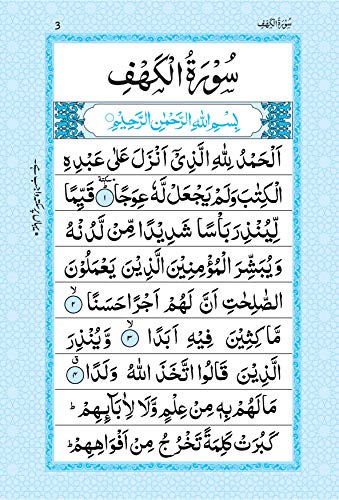 3
سُوْرَۃُ الْكَهْفِ
سُوْرَةُ الْكَهْفِ
بِسْمِ اللهِ الرَّحْمٰنِ الرَّحِيْمِ
اَلْحَمْدُ لِلّٰهِ الَّذِيْٓ اَنْزَلَ عَلٰى عَبْدِهِ
الْكِتٰبَ وَلَمْ يَجْعَلْ لَّهٗ عِوَجًا ۱ قَيِّمًا
لِّيُنْذِرَ بَاْسًا شَدِيْدًا مِّنْ لَّدُنْهُ
وَيُبَشِّرَ الْمُؤْمِنِيْنَ الَّذِيْنَ يَعْمَلُوْنَ
الصّٰلِحٰتِ اَنَّ لَهُمْ اَجْرًا حَسَنًا ۲
مَّاكِثِيْنَ فِيْهِ اَبَدًا ۳ وَّيُنْذِرَ
الَّذِيْنَ قَالُوا اتَّخَذَ اللّٰهُ وَلَدًا ۴
مَا لَهُمْ بِهٖ مِنْ عِلْمٍ وَّلَا لِاٰبَآئِهِمْ ؕ
كَبُرَتْ كَلِمَةً تَخْرُجُ مِنْ اَفْوَاهِهِمْ ؕ